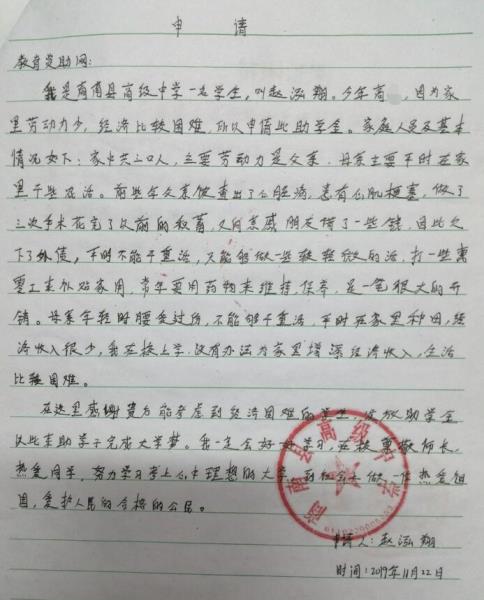 申 请
教育资助网:
我是商南县高级中学一名学生,叫赵泓翔。今年高 ,因为家
里劳动力少,经济比较困难,所以申请此助学金。家庭人员及基本
情况如下:家中共三口人,主要劳动力是父亲,母亲主要平时在家
里干些农活。前些年父亲被查出了心脏病,患有心肌梗塞,做了
三次手术花完了以前的积蓄,又向亲戚朋友借了一些钱,因此欠
下了外债,平时不能干重活,只能够做一些较轻微的活,打一些零
零工来补贴家用,常年要用药物来维持保养,是一笔很大的开
销。母亲年轻时腰受过伤,不能够干重活,平时在家里种田,经
济收入很少,我在校上学,没有办法为家里增添经济收入,生活
比较困难。
在这里感谢贵方能考虑到经济困难的学生,发放助学金
以此来助学子完成大学梦。我一定会好好学习,在校尊敬师长,
热爱同学,努力学习考上心中理想的大学,到社会去做一位热爱祖
国,爱护人民的合格的公民。
商南县高级中学
申请人:赵泓翔
时间:2019年11月22日